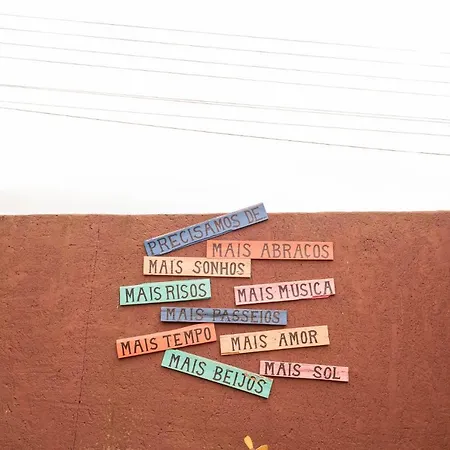 PRECISAMOS DE
MAIS ABRAÇOS
MAIS SONHOS
MAIS RISOS
MAIS MUSICA
MAIS PASSEIOS
MAIS TEMPO
MAIS AMOR
MAIS BEIJOS
MAIS SOL